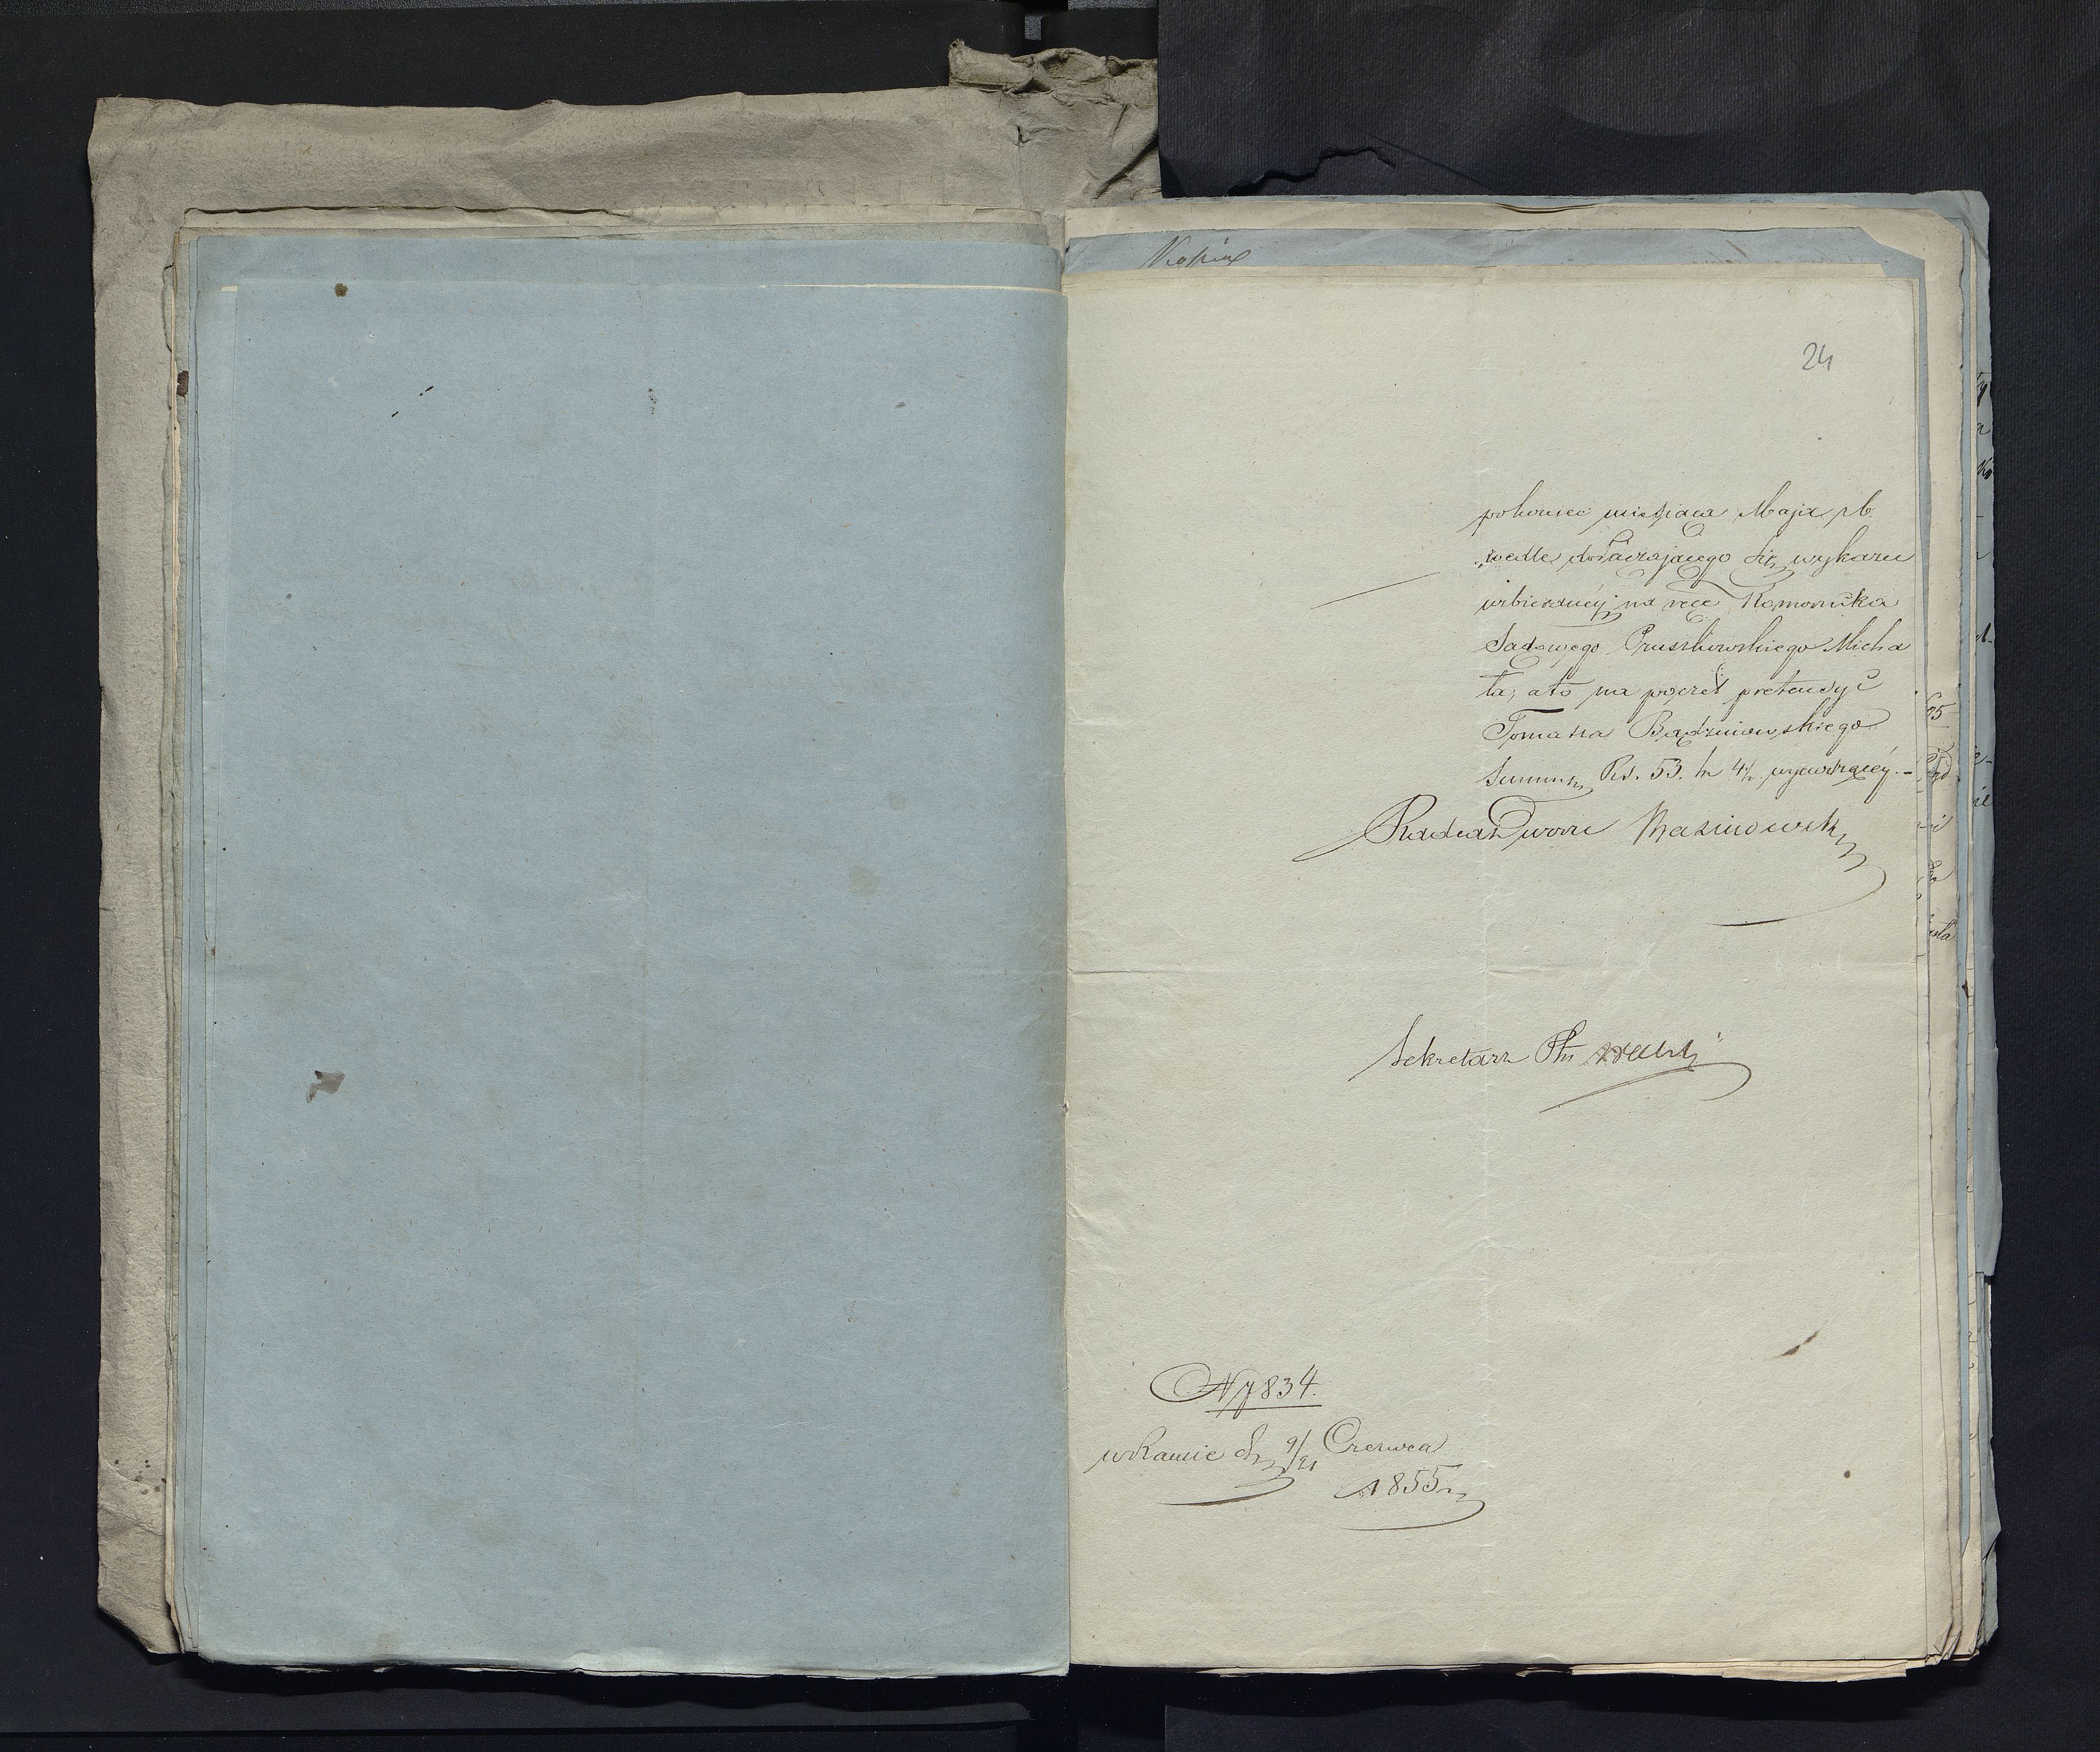 24
pokoniec miesiąca Maja r.b.
wedle dołączającego się wykazu
uzbieranéj na ręce Komornika
Sądowego Pruszkowskiego Micha
ła, a to na poczet pretensyi
Tomasza Bądzinowskiego
Summę Rs. 53. k 4½ wynoszącéj.–
Radca Dworu
Sekretarz
N 7834.
w Rawie d. 9/21 Czerwca
1855 r.